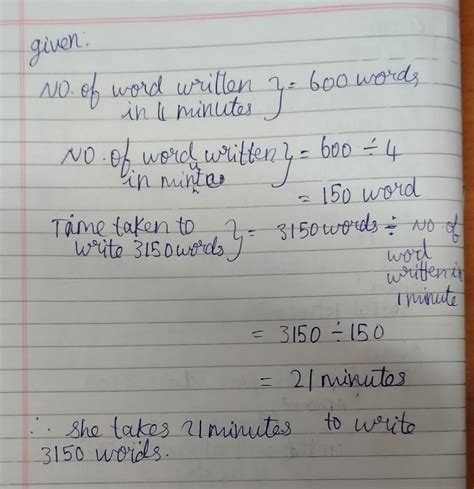 given:
NO. of word written } = 600 words
in 4 minutes
NO. of word written } = 600 ÷ 4
in minute
= 150 word
Time taken to } = 3150 words ÷ NO of
write 3150 words word
written in
1 minute
= 3150 ÷ 150
= 21 minutes
∴ she takes 21 minutes to write
3150 words.